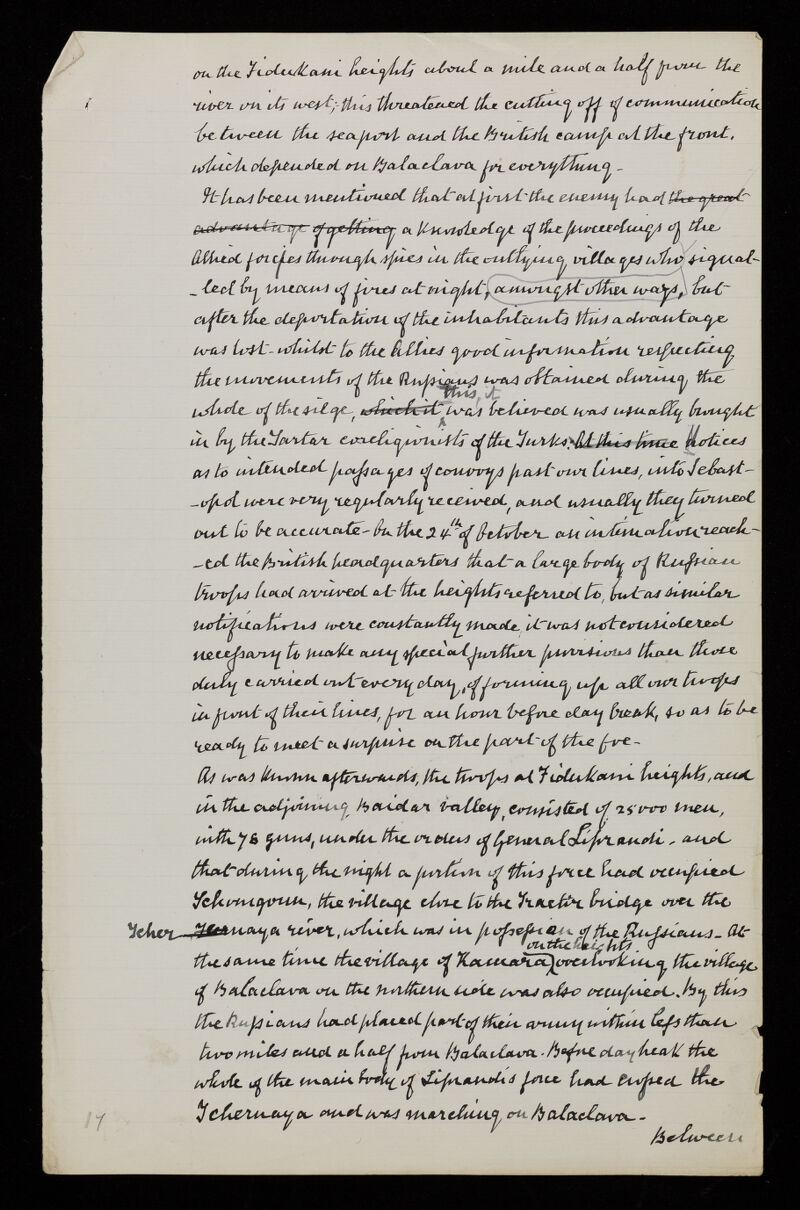 on the Fidukani heights about a mile and a half from the
river on its west; this threatened the cutting off of communication
between the seaport and the British camp at the front,
which depended on Balaclava for everything -
It has been mentioned that at first the enemy had the great
advantage of getting a knowledge of the proceedings of the
Allied forces through spies in the outlying villages who signal-
-led by means of fires at night, amongst other ways, but
after the deportation of the inhabitants this advantage
was lost - whilst to the Allies good information respecting
the movements of the Russians was obtained during the
this, it
whole of the siege, which it was believed was usually brought
in by the Tartar coreligionists of the Turks. At this time Notices
as to intended passages of convoys past our lines, into Sebast-
-opol were very regularly received, and usually they turned
out to be accurate - On the 24th of October an intimation reach-
-ed the British headquarters that a large body of Russian
troops had arrived at the heights referred to, but as similar
notifications were constantly made, it was not considered
necessary to make any special further provisions than those
duly carried out every day, of forming up all our troops
in front of their lines, for an hour before day break, so as to be
ready to meet a surprise on the part of the foe -
As was known afterwards, the troops at Fidukani heights, and
in the adjoining Baidar valley, consisted of 25000 men,
with 78 guns, under the orders of General Liprandi - and
that during the night a portion of this force had occupied
Tchorgoun, the village close to the Tractir bridge over the
Tcher naya river, which was in possession of the Russians - At
on the heights
the same time the village of Kamara overlooking the village
of Balaclava on the northern side was also occupied. By this
the Russians had placed part of their army within less than
two miles and a half from Balaclava. Before day break the
whole of the main body of Liprandis force had crossed the
Tchernaya and was marching on Balaclava -
Between
17